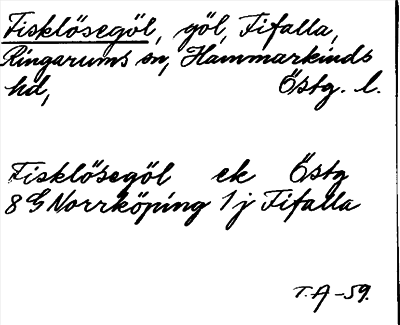 Fisklösegöl, göl, Fifalla,
Ringarums sn, Hammarkinds
hd, Östg. l.
Fisklösegöl ek Östg
8 G Norrköping 1 j Fifalla
T.A -59.